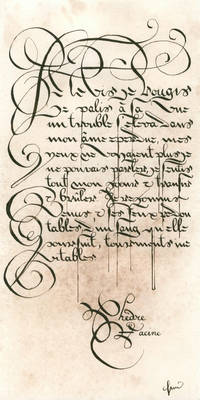 Je le vis je rougis
Je palis à sa vue
un trouble s'éleva dans
mon âme éperdue, mes
yeux ne voyaient plus je
ne pouvais parler, je sentis
tout mon corps & transir
& brûler je reconnus
Venus & ses feux redou
tables d'un sang qu'elle
poursuit, tourments iné
vitables
Phèdre
Racine